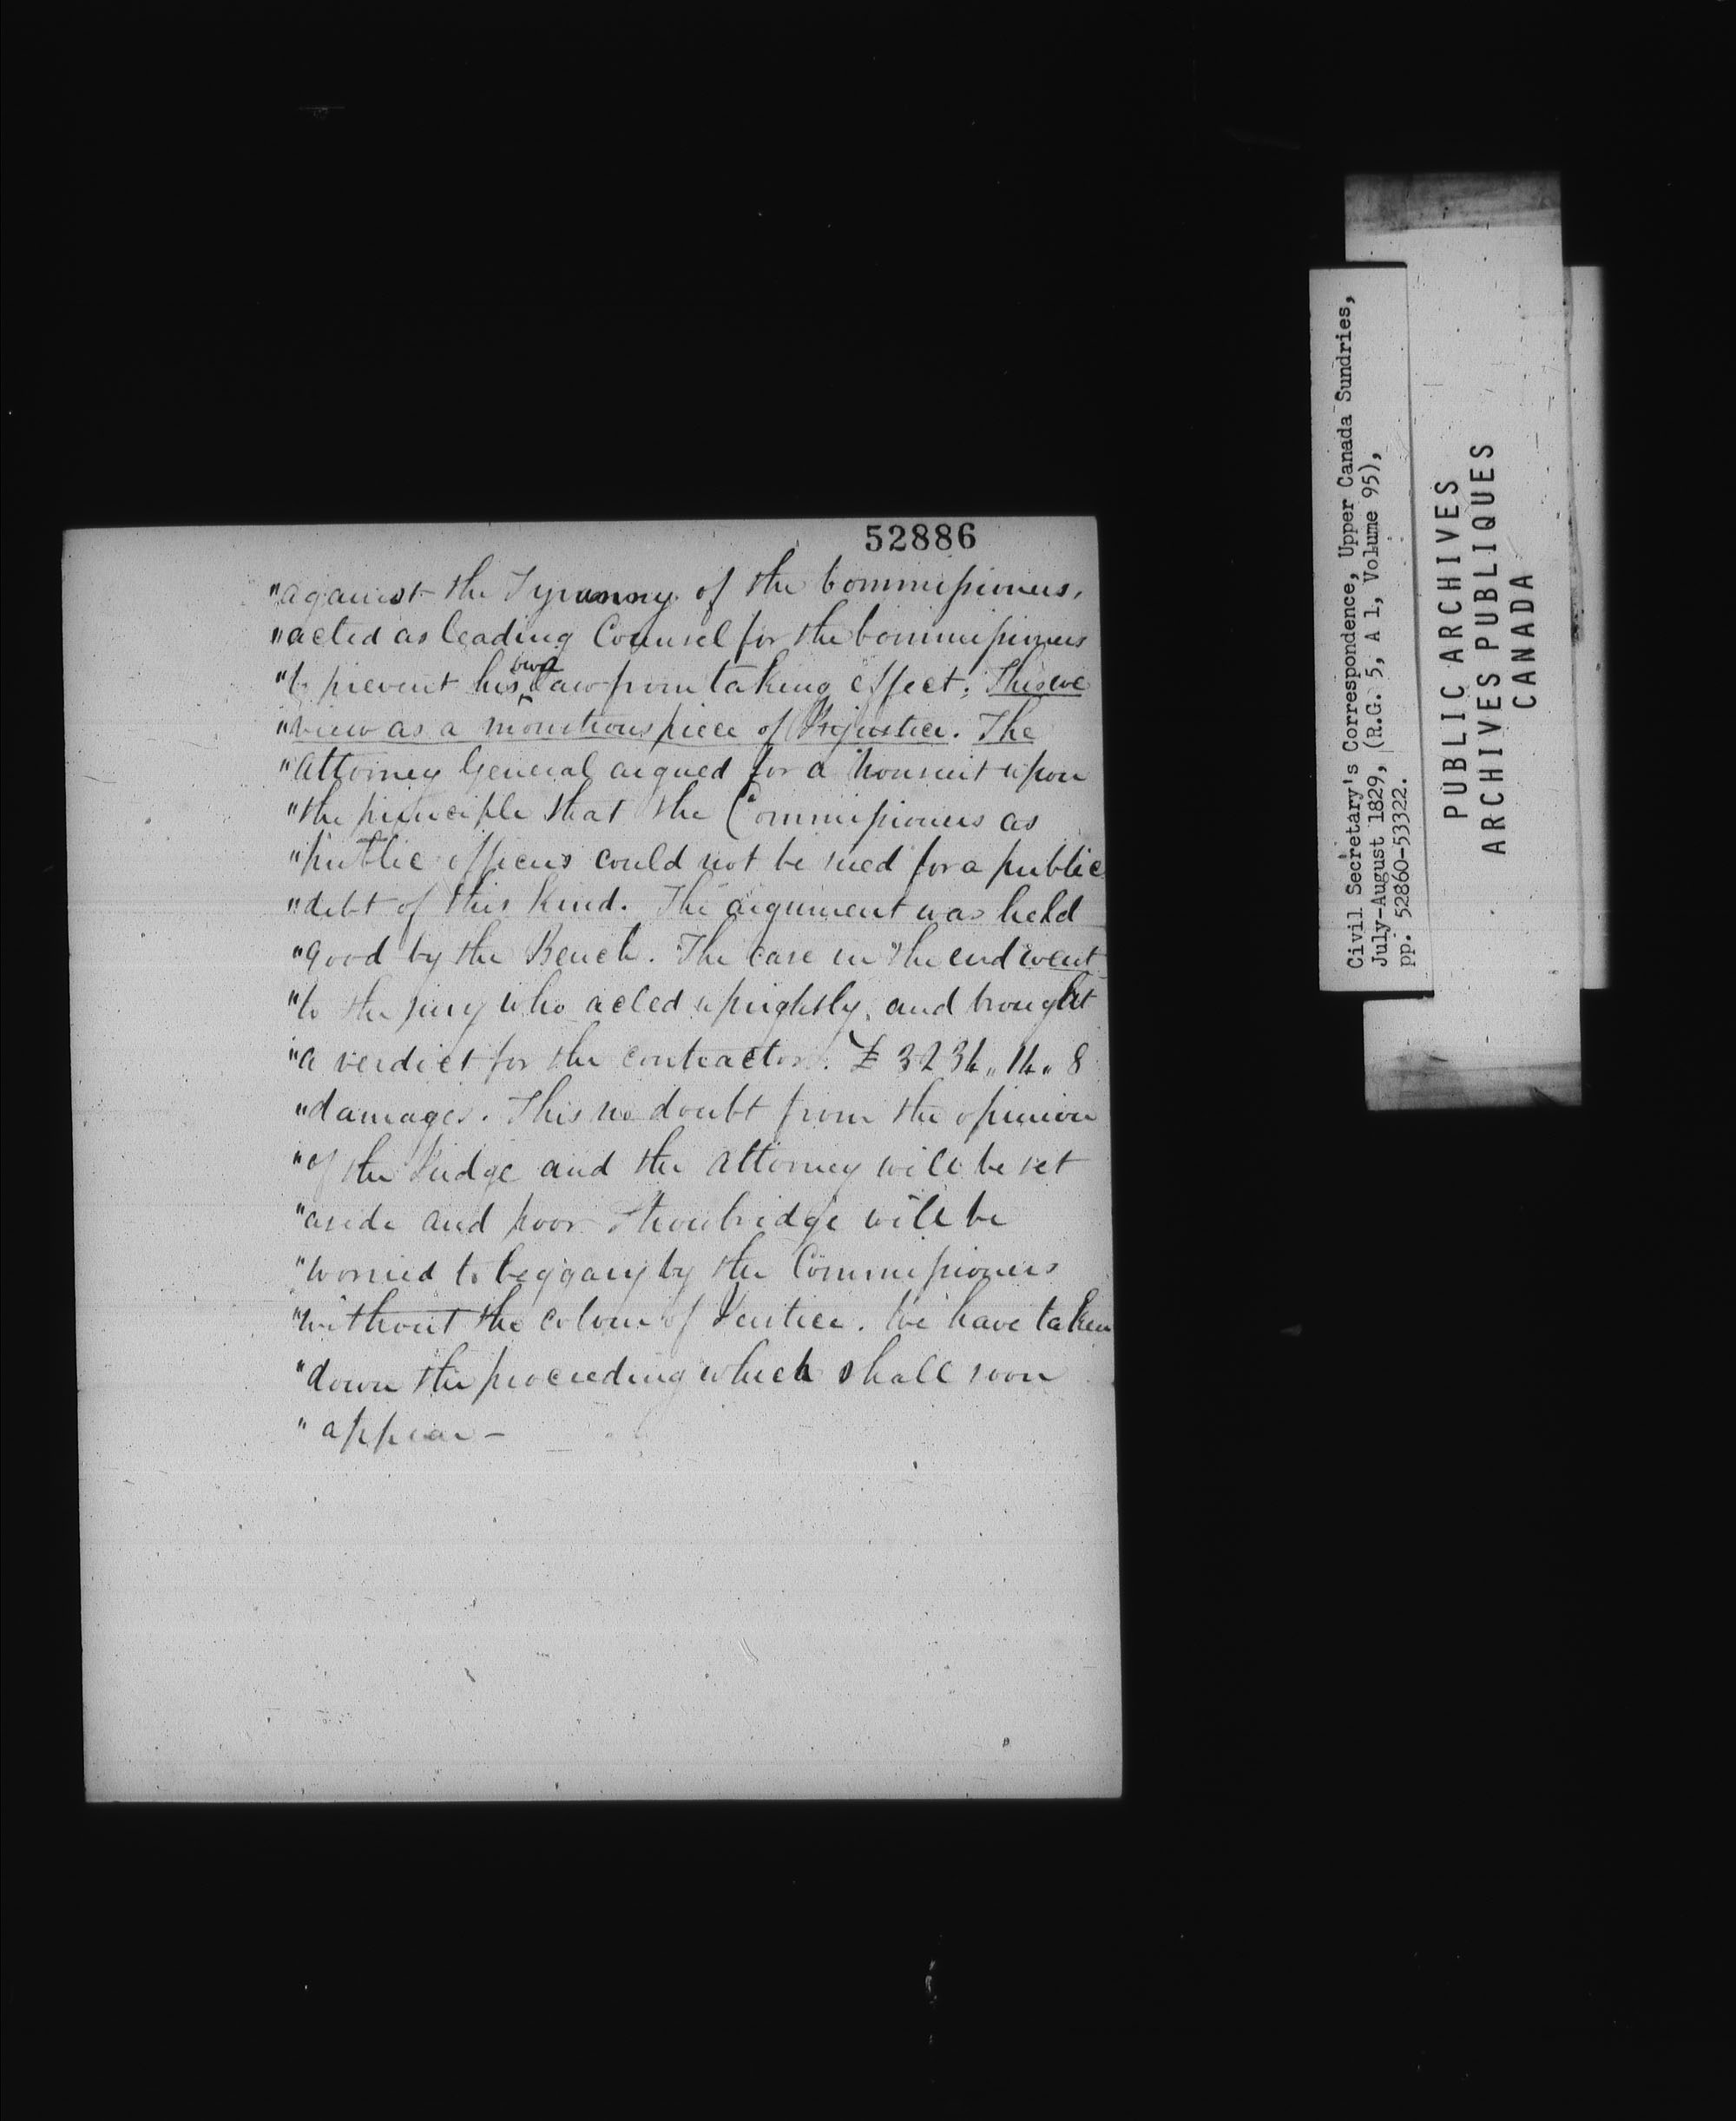 52886
"against the Tyranny of the Commissioners,
"acted as leading Counsel for the Commissioners
"to prevent his own Law from taking effect. This we
"view as a monstrous piece of Injustice. The
"Attorney General argued for a nonsuit upon
"the principle that the Commissioners as
"public officers could not be sued for a public
"debt of this kind. The argument was held
"good by the Bench. The case in the end went
"to the jury who acted uprightly, and brought
"a verdict for the contractor. £3234,,14,,8
"damages. This no doubt from the opinion
"of the Judge and the Attorney will be set
"aside and poor Trowbridge will be
"worried to beggary by the Commissioners
"without the colour of Justice. We have taken
"down the proceeding which shall soon
"appear —
Civil Secretary's Correspondence, Upper Canada Sundries,
July-August 1829, (R.G. 5, A 1, Volume 95),
pp. 52860-53322.
PUBLIC ARCHIVES
ARCHIVES PUBLIQUES
CANADA